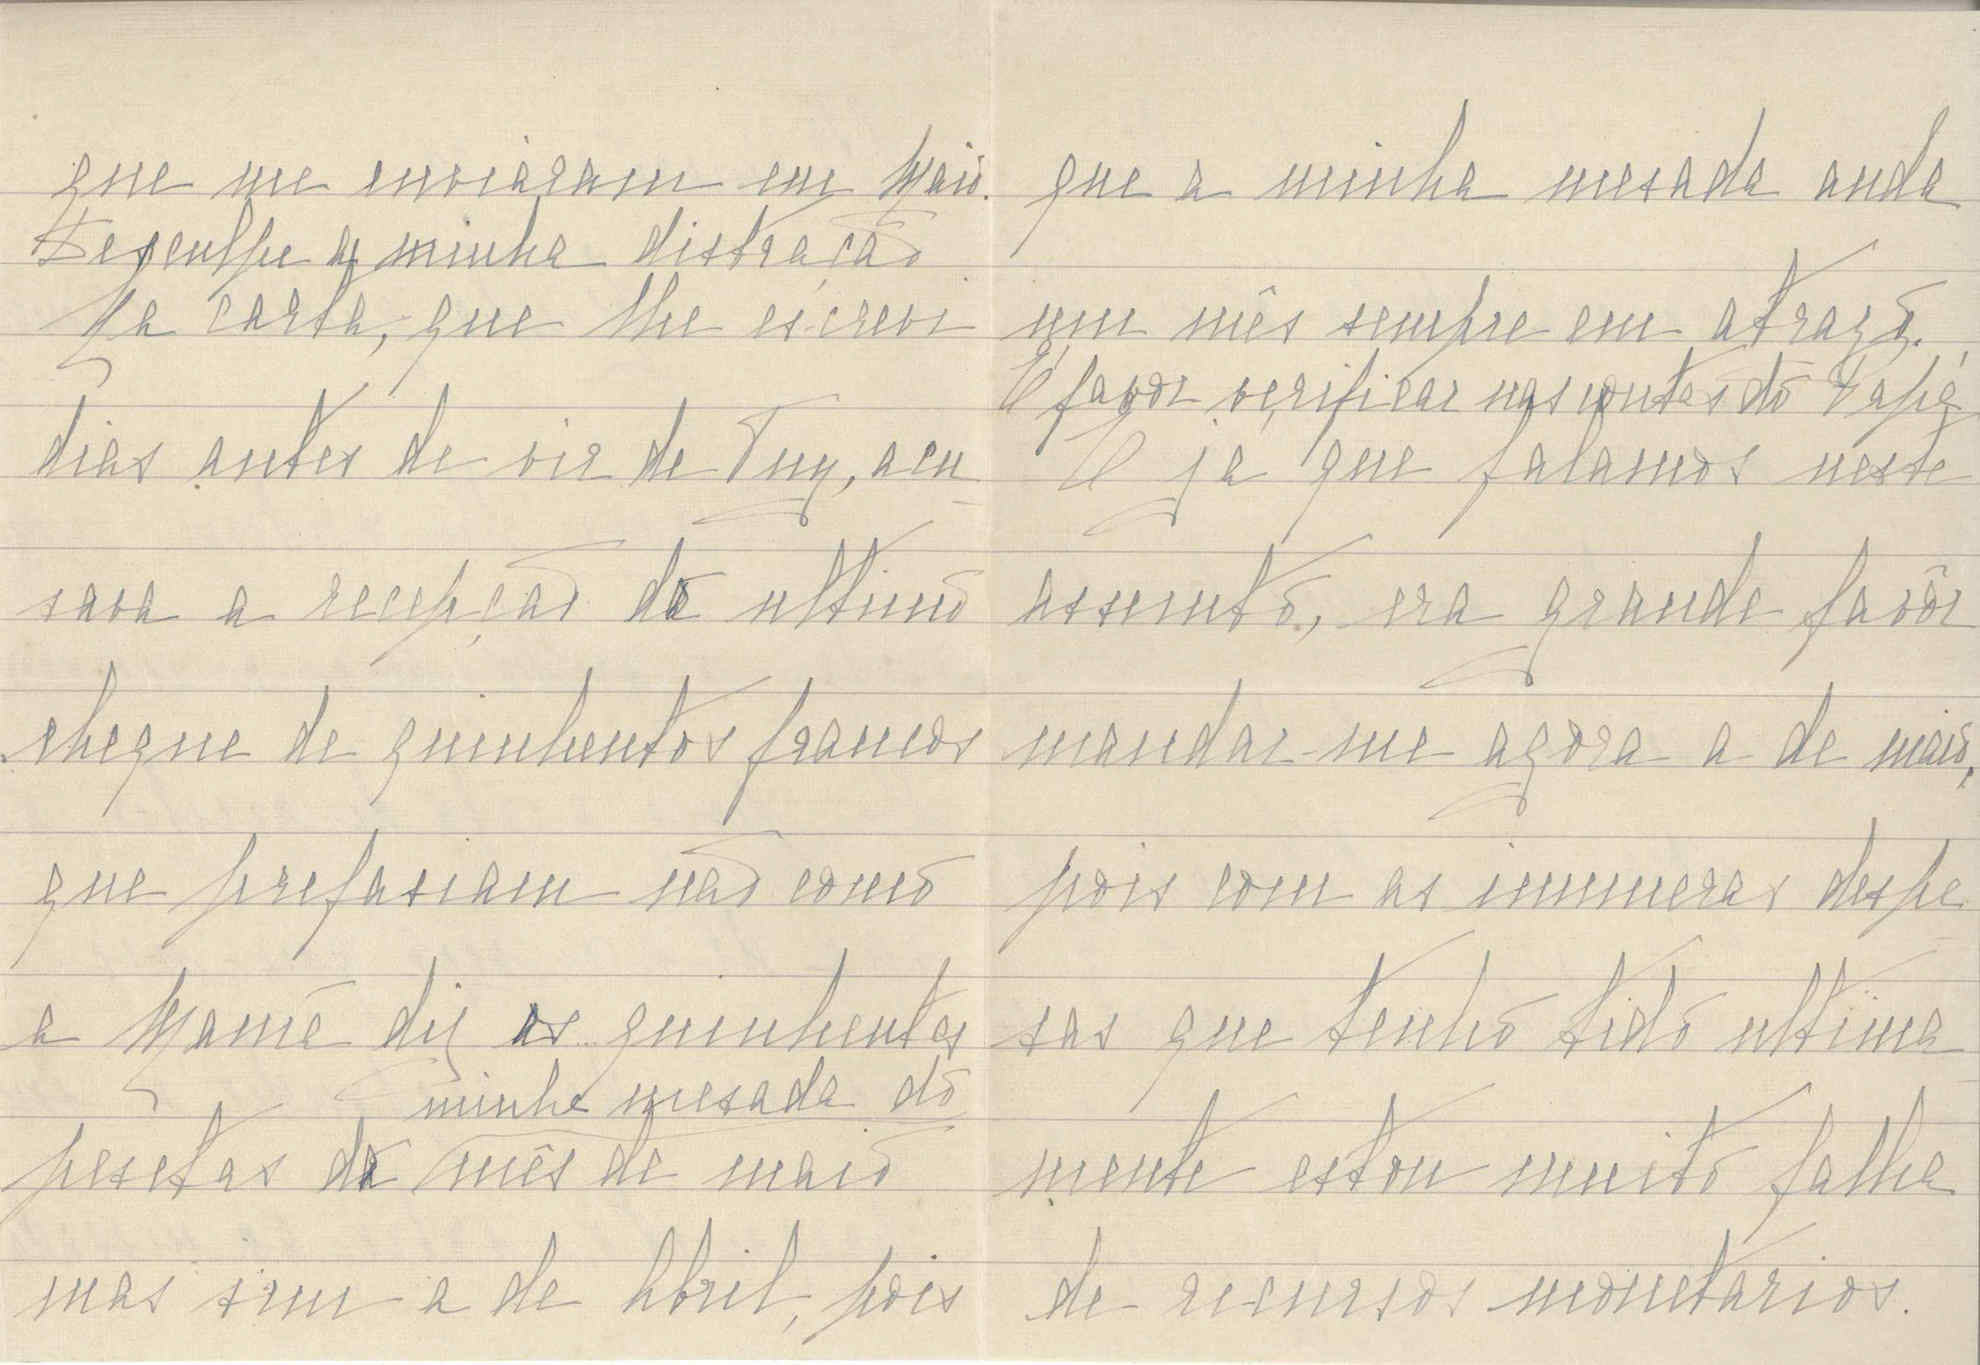 que me enviaram em Maio.
Desculpe a minha distração
Na carta, que lhe escrevi
dias antes de vir de Tuy, acu
sava a recepção do ultimo
cheque de quinhentos francos
que prefasiam não como
a Mamã diz as quinhentas
minha mesada do
pesetas da mês de maio
mas sim a de Abril, pois
que a minha mesada anda
um mês sempre em atrazo.
É favor verificar nas contas do Papá
E já que falamos neste
assunto, era grande favôr
mandar-me agora a de maio,
pois com as inumeras despe
sas que tenho tido ultima
mente estou muito falha
de recursos monetarios.